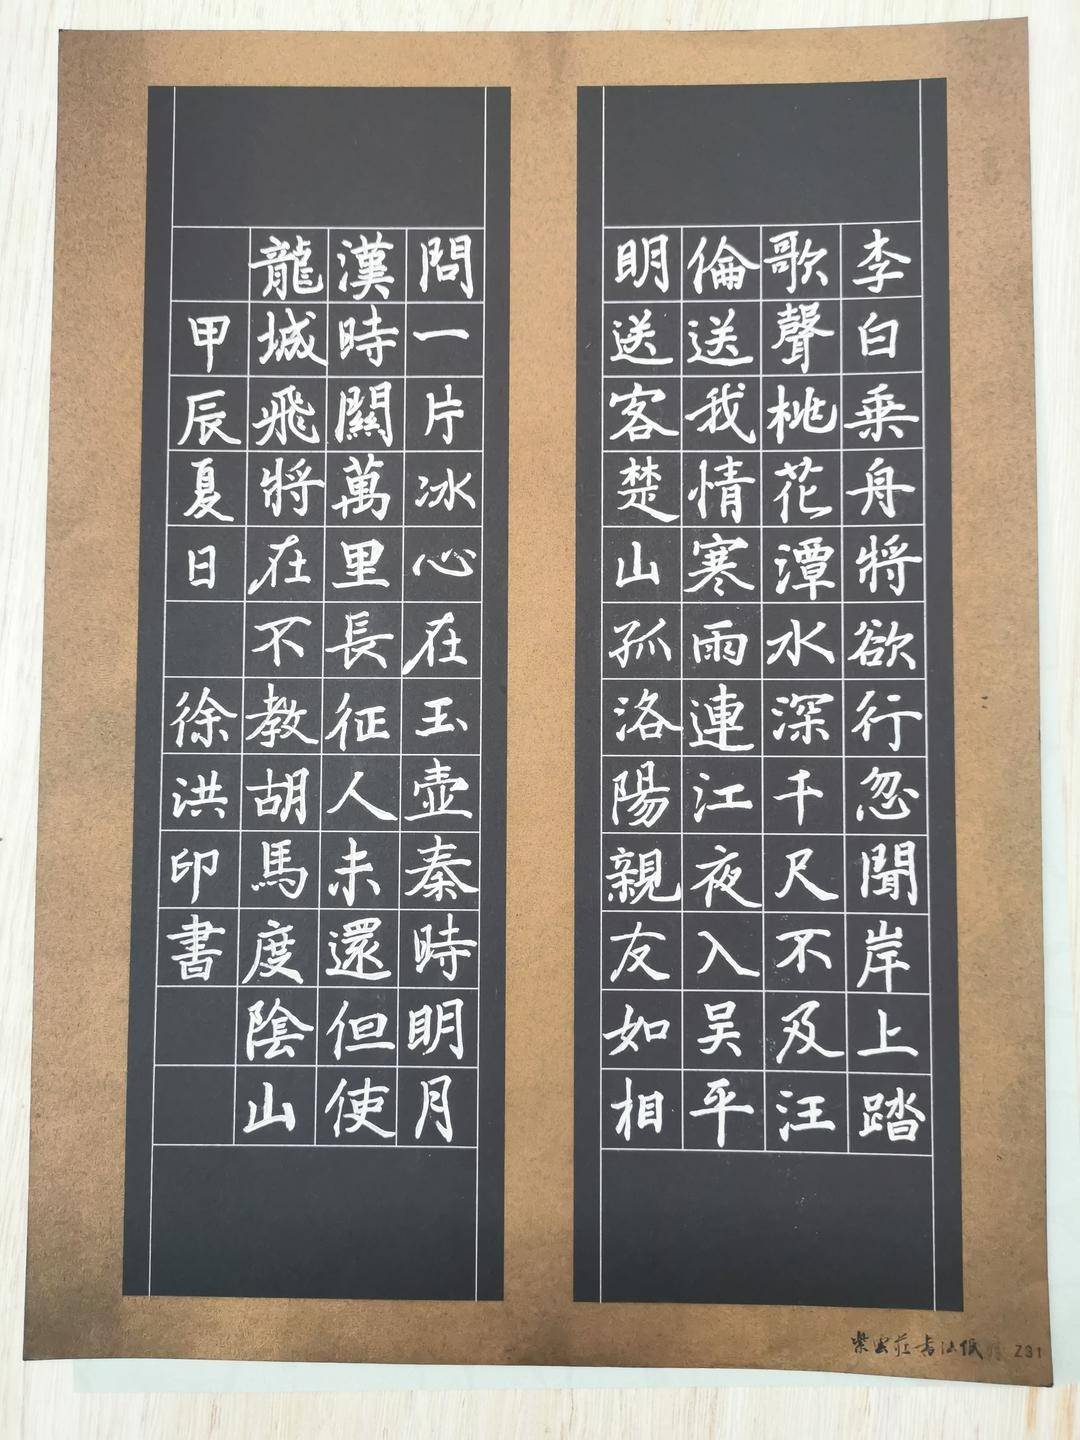 李白乗舟將欲行忽聞岸上踏
歌聲桃花潭水深千尺不及汪
倫送我情寒雨連江夜入吴平
明送客楚山孤洛陽親友如相
問一片冰心在玉壺秦時明月
漢時關萬里長征人未還但使
龍城飛將在不教胡馬度陰山
甲辰夏日 徐洪印書
紫雲莊书法纸 Z31